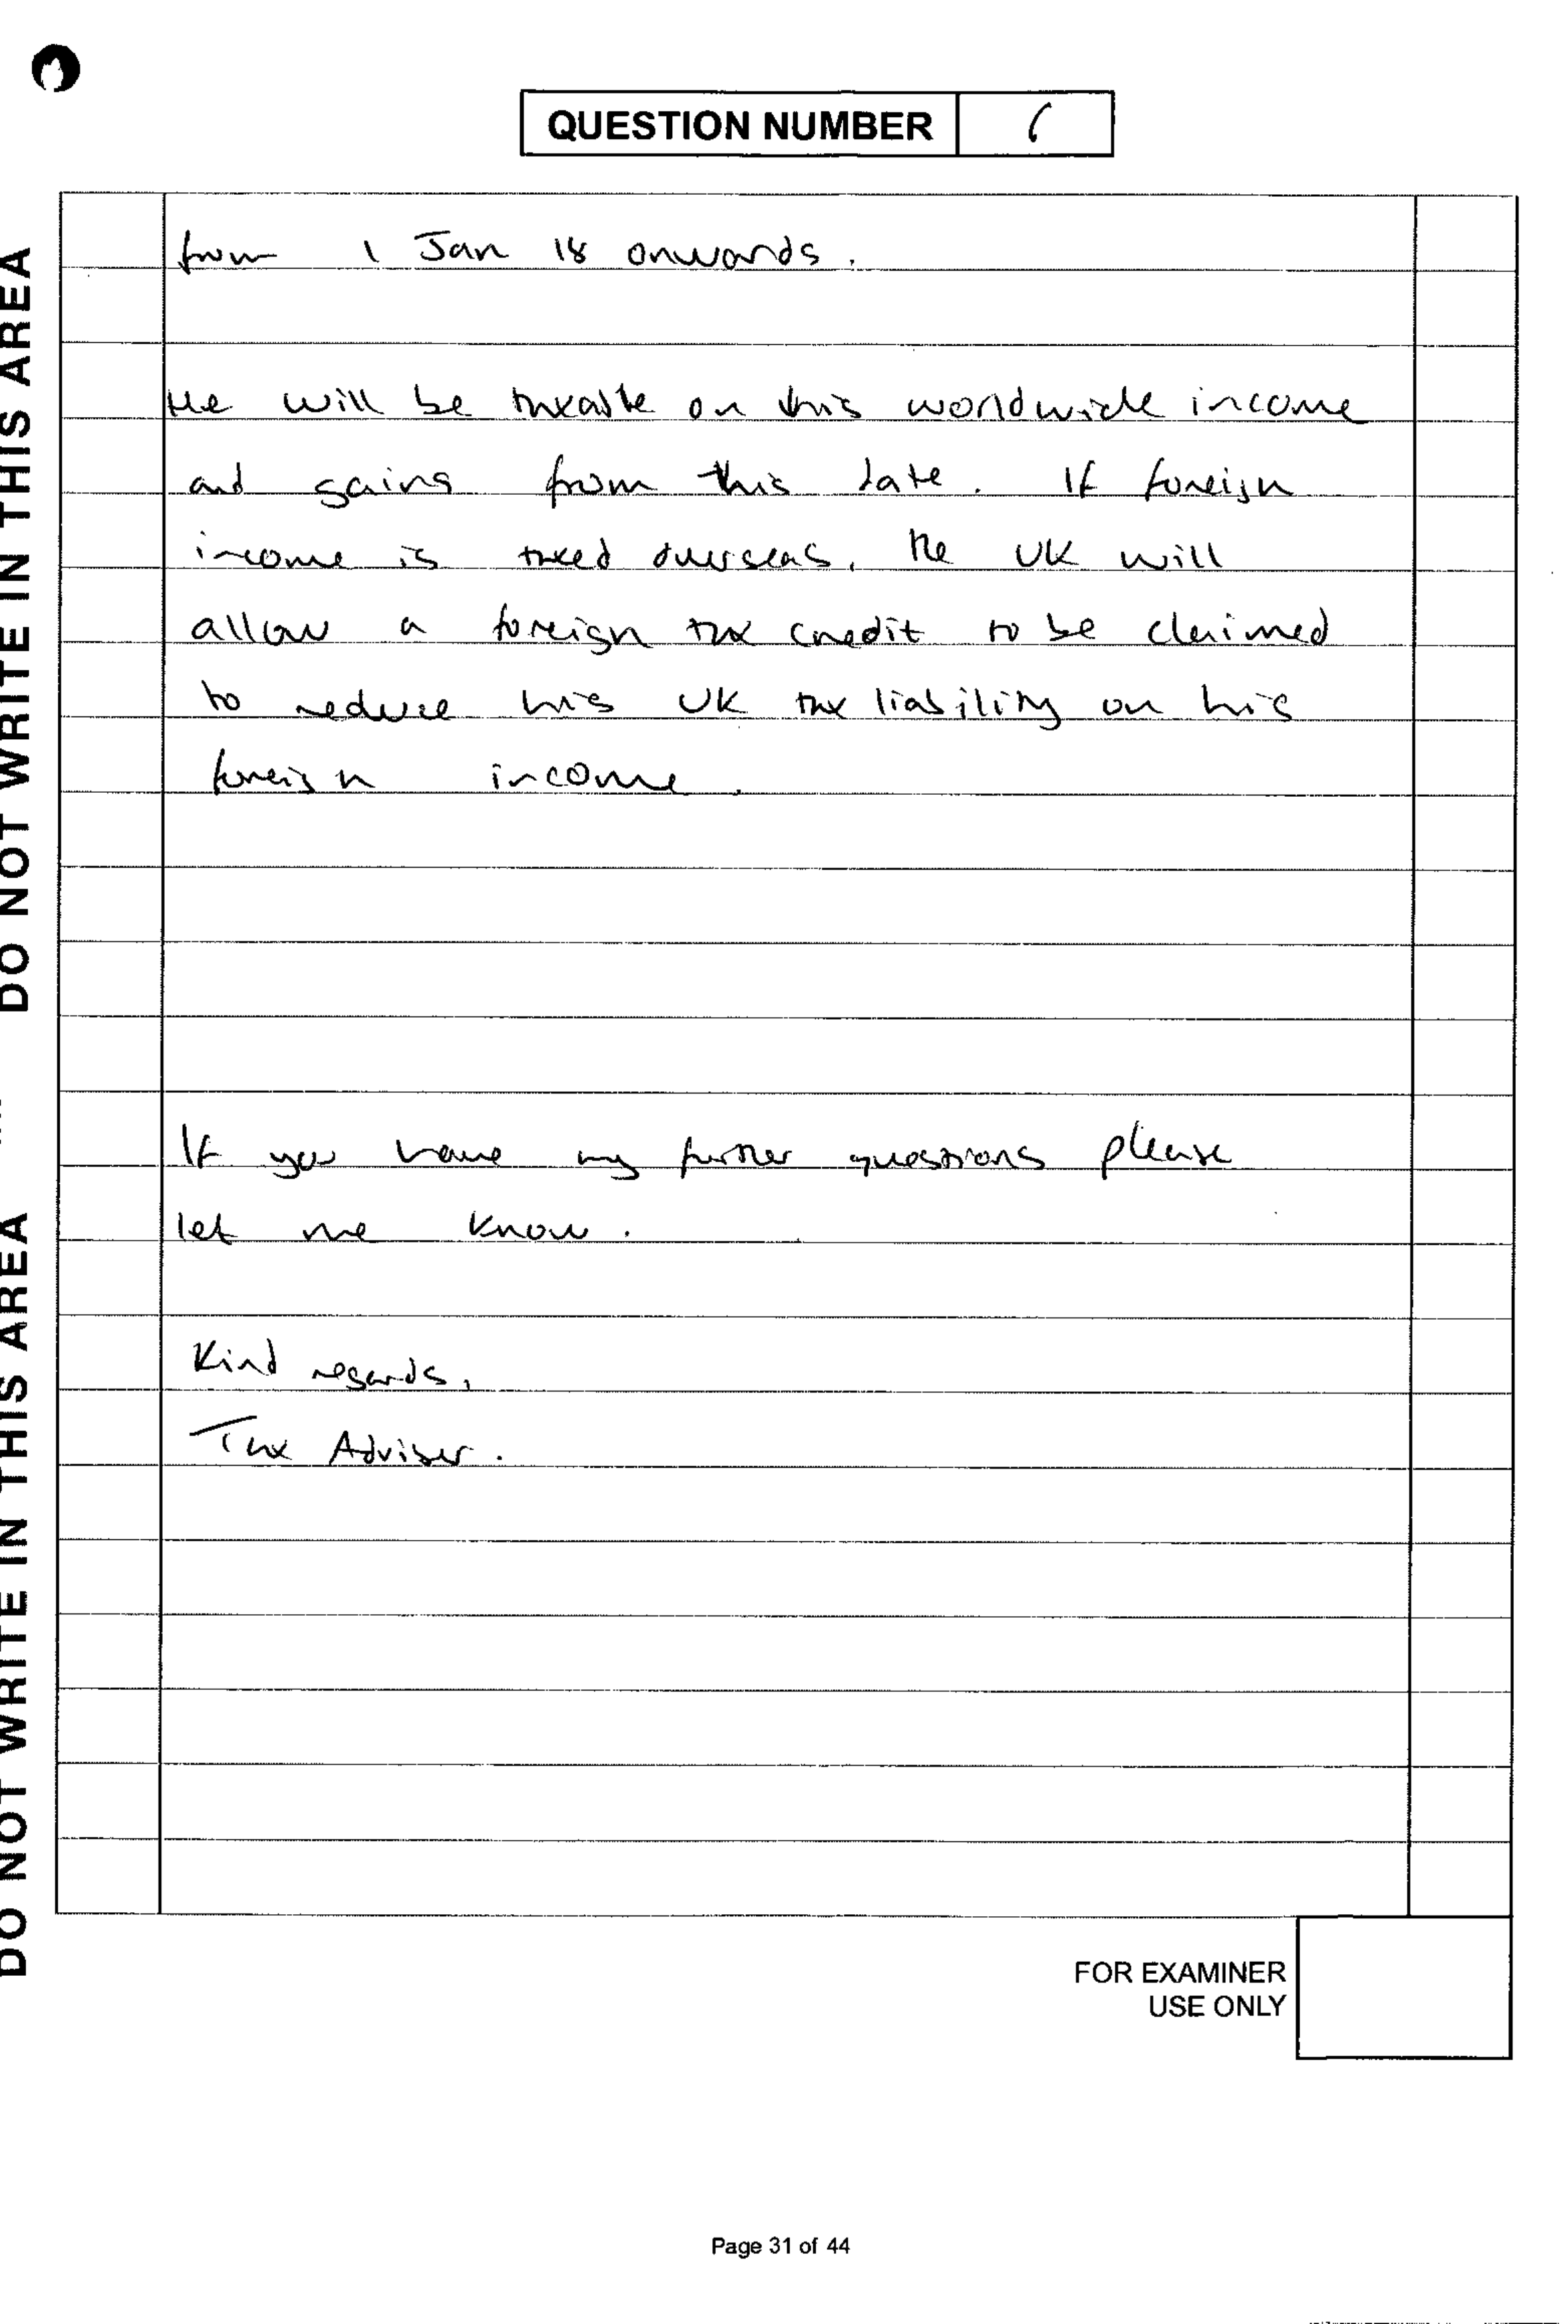 QUESTION NUMBER
from 1 Jan 18 onwards.
He will be taxable on this worldwide income
and gains from this date. If foreign
income is taxed overseas, the UK will
allow a foreign tax credit to be claimed
to reduce his UK tax liability on his
foreign income.
If you have any further questions please
let me know.
Kind regards,
Tax Adviser.
DO NOT WRITE IN THIS AREA
DO NOT WRITE IN THIS AREA
FOR EXAMINER
USE ONLY
Page 31 of 44